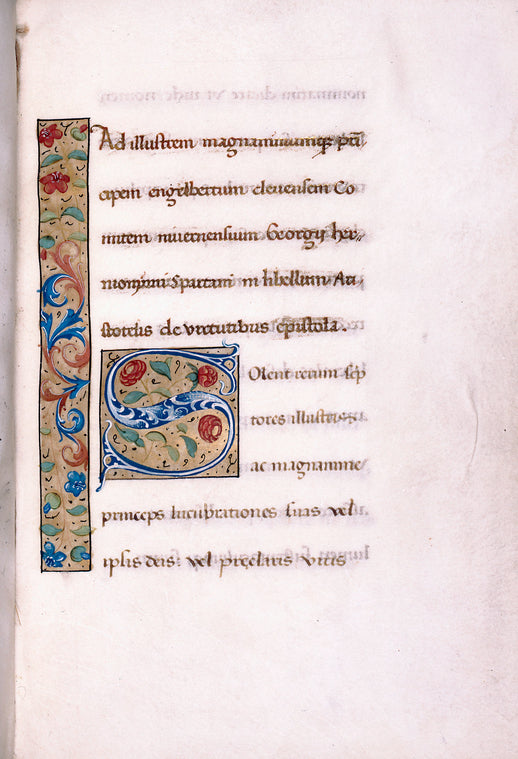 Ad illustrem magnanimumq; prī
cipem engilbertum clevensem Co
mitem nivernensium Georgij her
monymi Spartani in libellum Ari
stotelis de virtutibus epistola.
SOlent rerum scrip
tores illustris
ac magnanime
princeps lucubrationes suas vel
ipsis deis: vel pręclaris viris